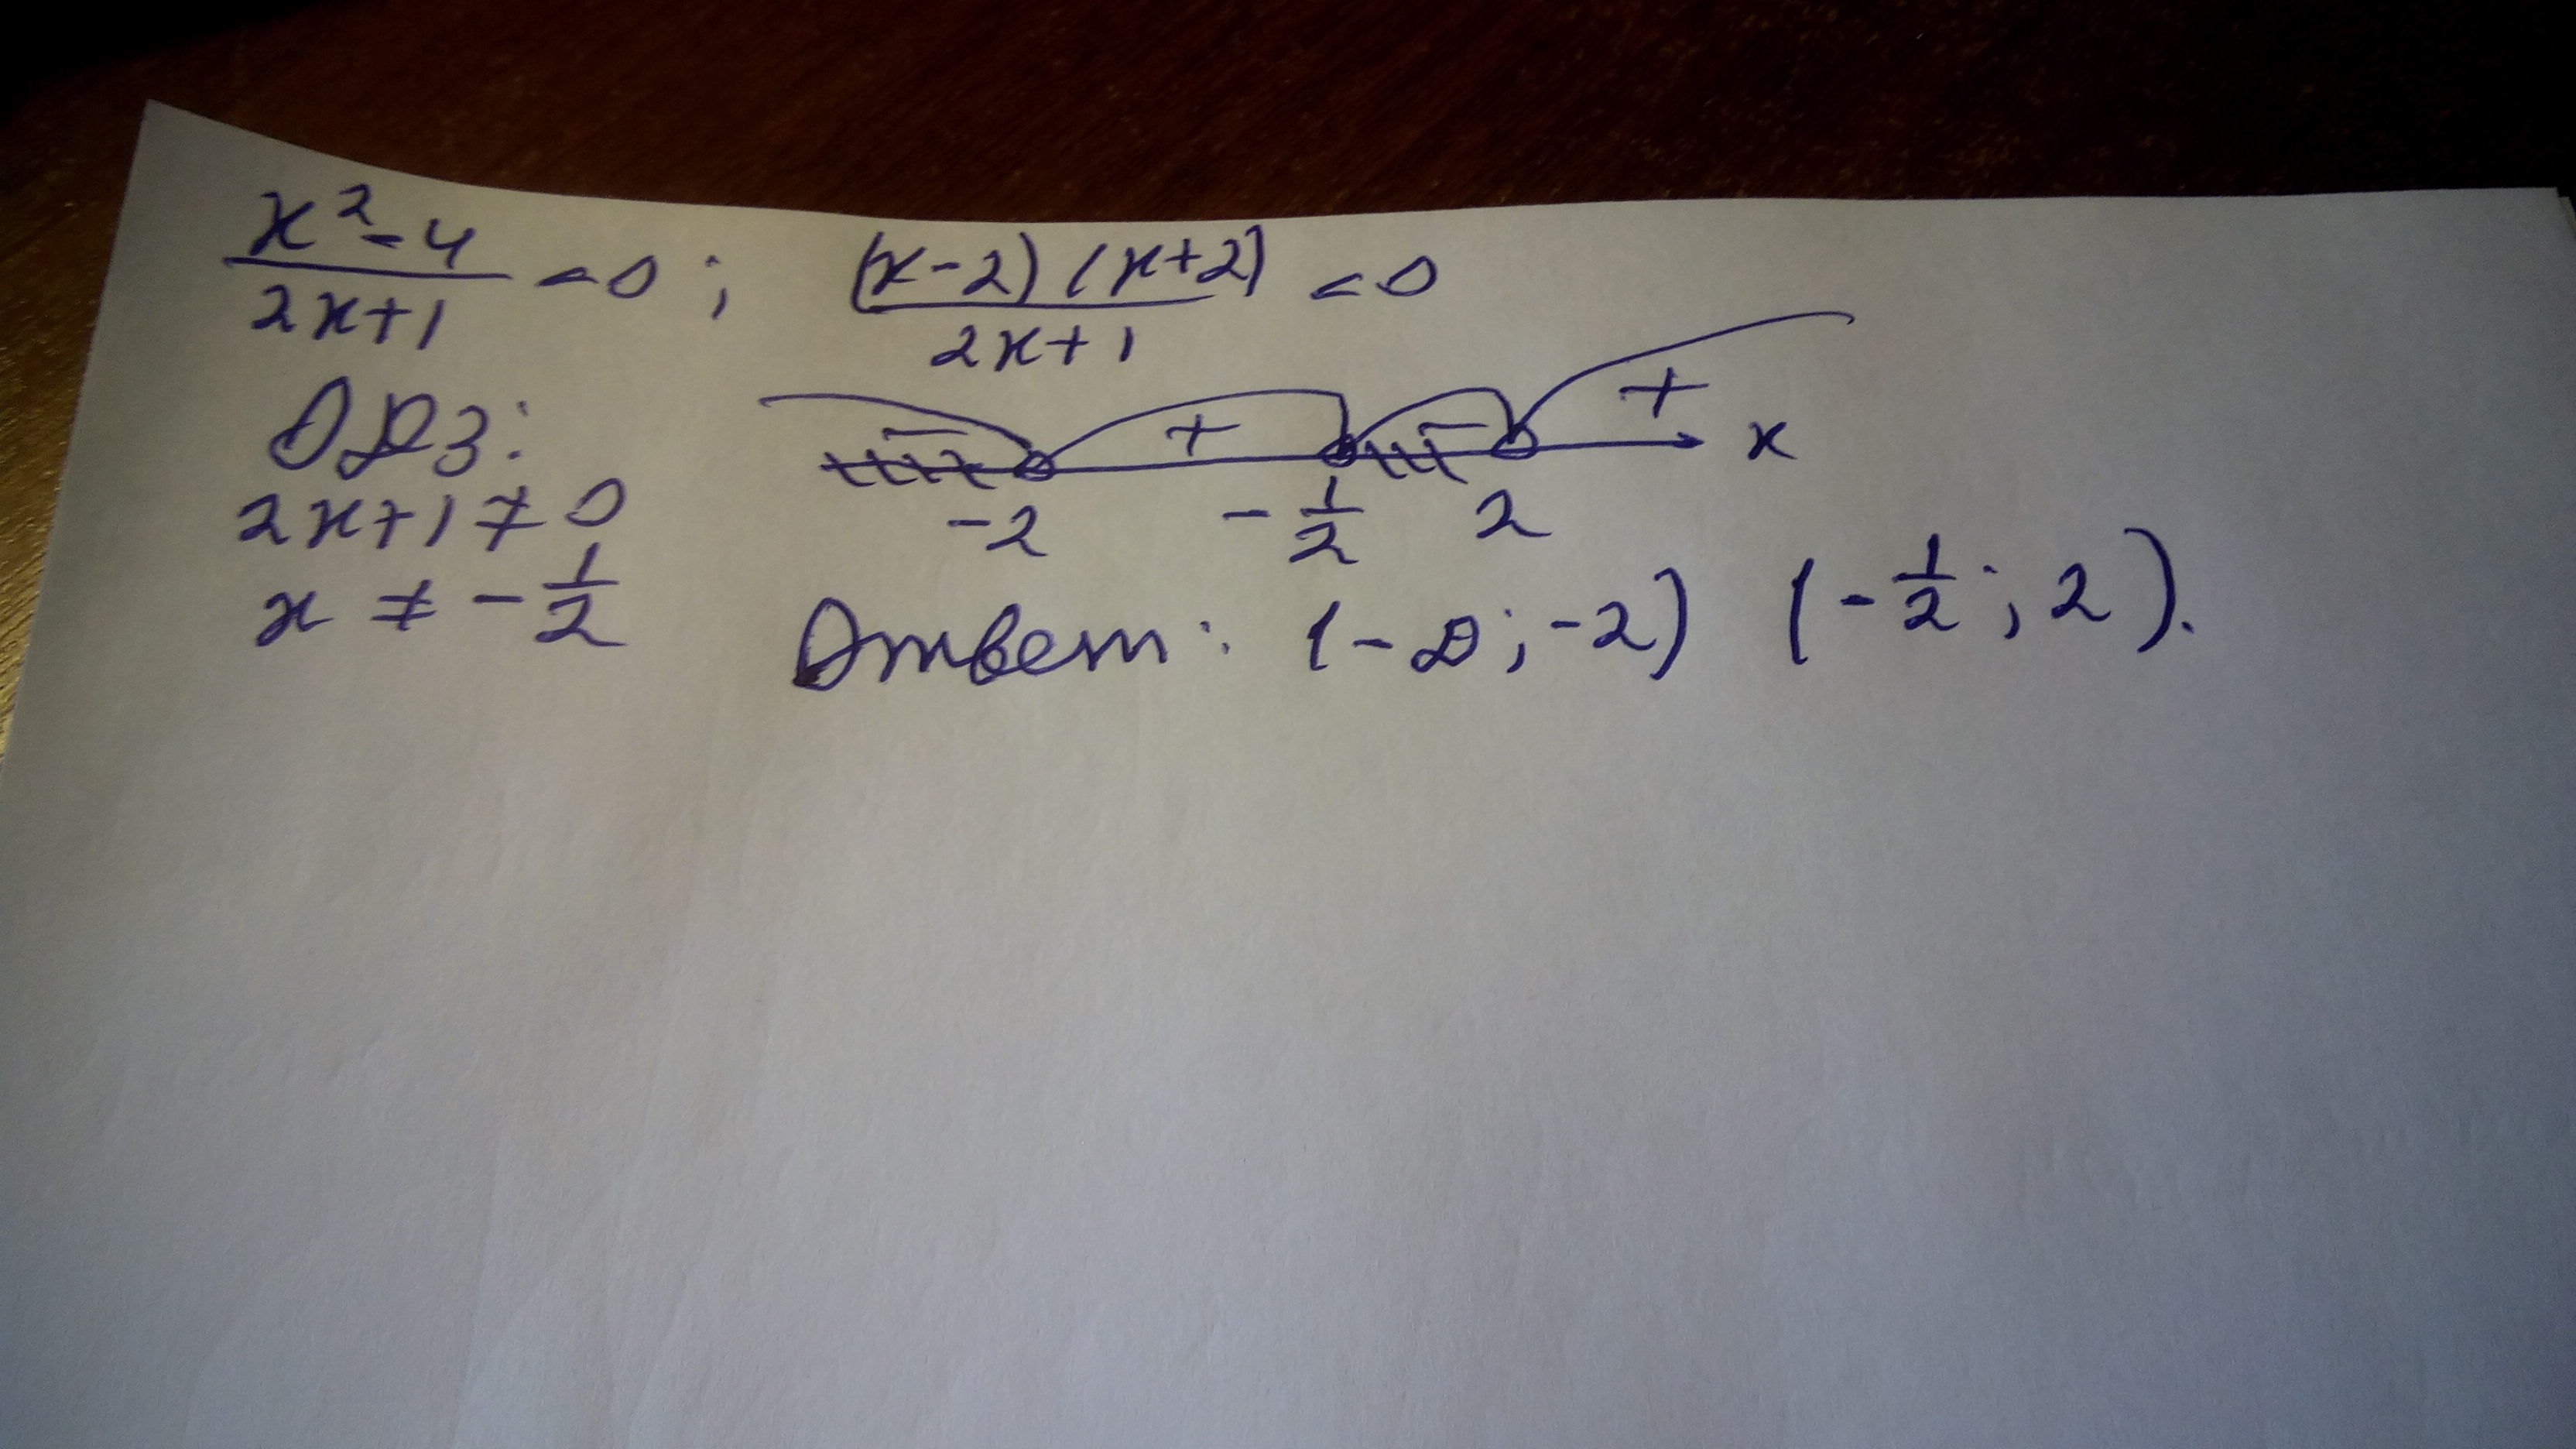 x² - 4 / 2x+1 < 0 ; (x-2) (x+2) / 2x+1 < 0
ОДЗ:
- + - + x
2x+1 ≠ 0
-2 -1/2 2
x ≠ - 1/2
Ответ: (-∞; -2) (-1/2; 2).